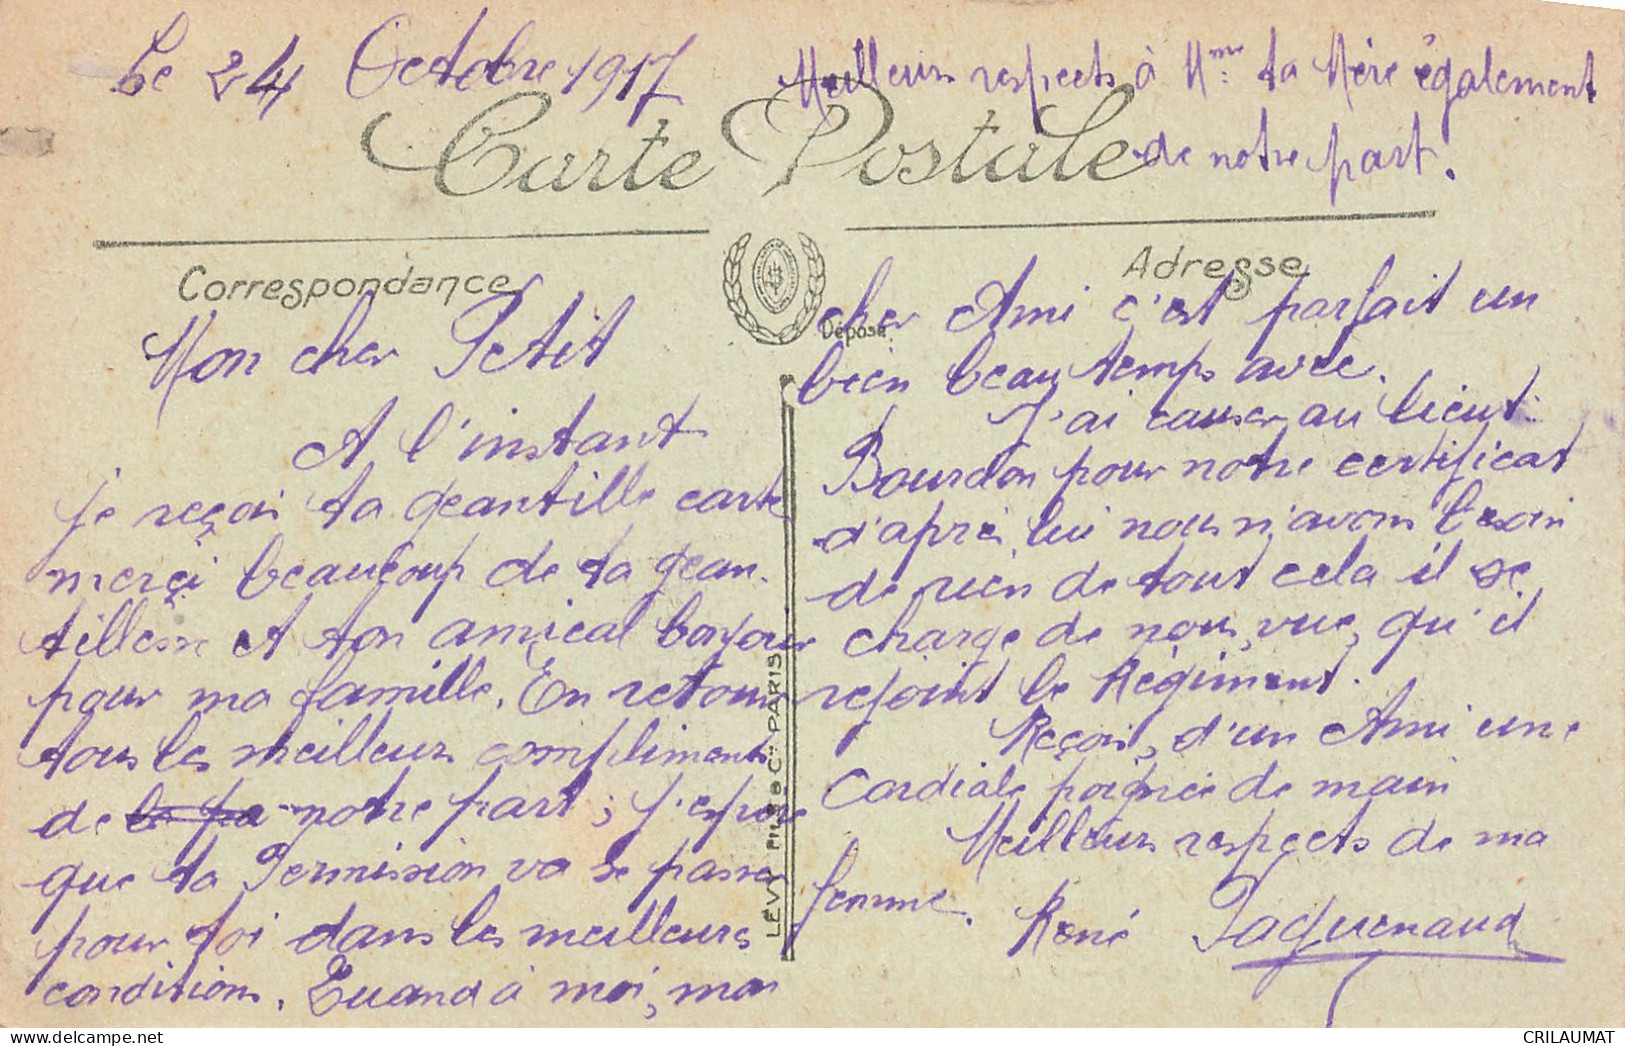 Le 24 Octobre 1917
Meilleurs respects à Mme ta Mère également
de notre part.
Carte Postale
Correspondance
Adresse
Déposé
Mon cher Petit
A l'instant
je reçoi ta geantille carte
merçi beaucoup de ta gean-
tillesse et ton amical bonjour
pour ma famille. En retour
tous les meilleurs compliments
de notre part; j'espère
que ta Permission va se passer
pour toi dans les meilleurs
conditions. Quand à moi, mon
LÉVY FILS & Cie PARIS
cher Ami c'est parfait un
bien beau temps avec.
J'ai causer au lieut.
Bourdon pour notre certificat
d'après lui nous n'avons besoin
de rien de tout cela il se
charge de nous vue, qu'il
rejoint le Régiment.
Reçois, d'un Ami une
Cordiale poignée de main
Meilleurs respects de ma
femme.
René Paquenaud
CRILAUMAT